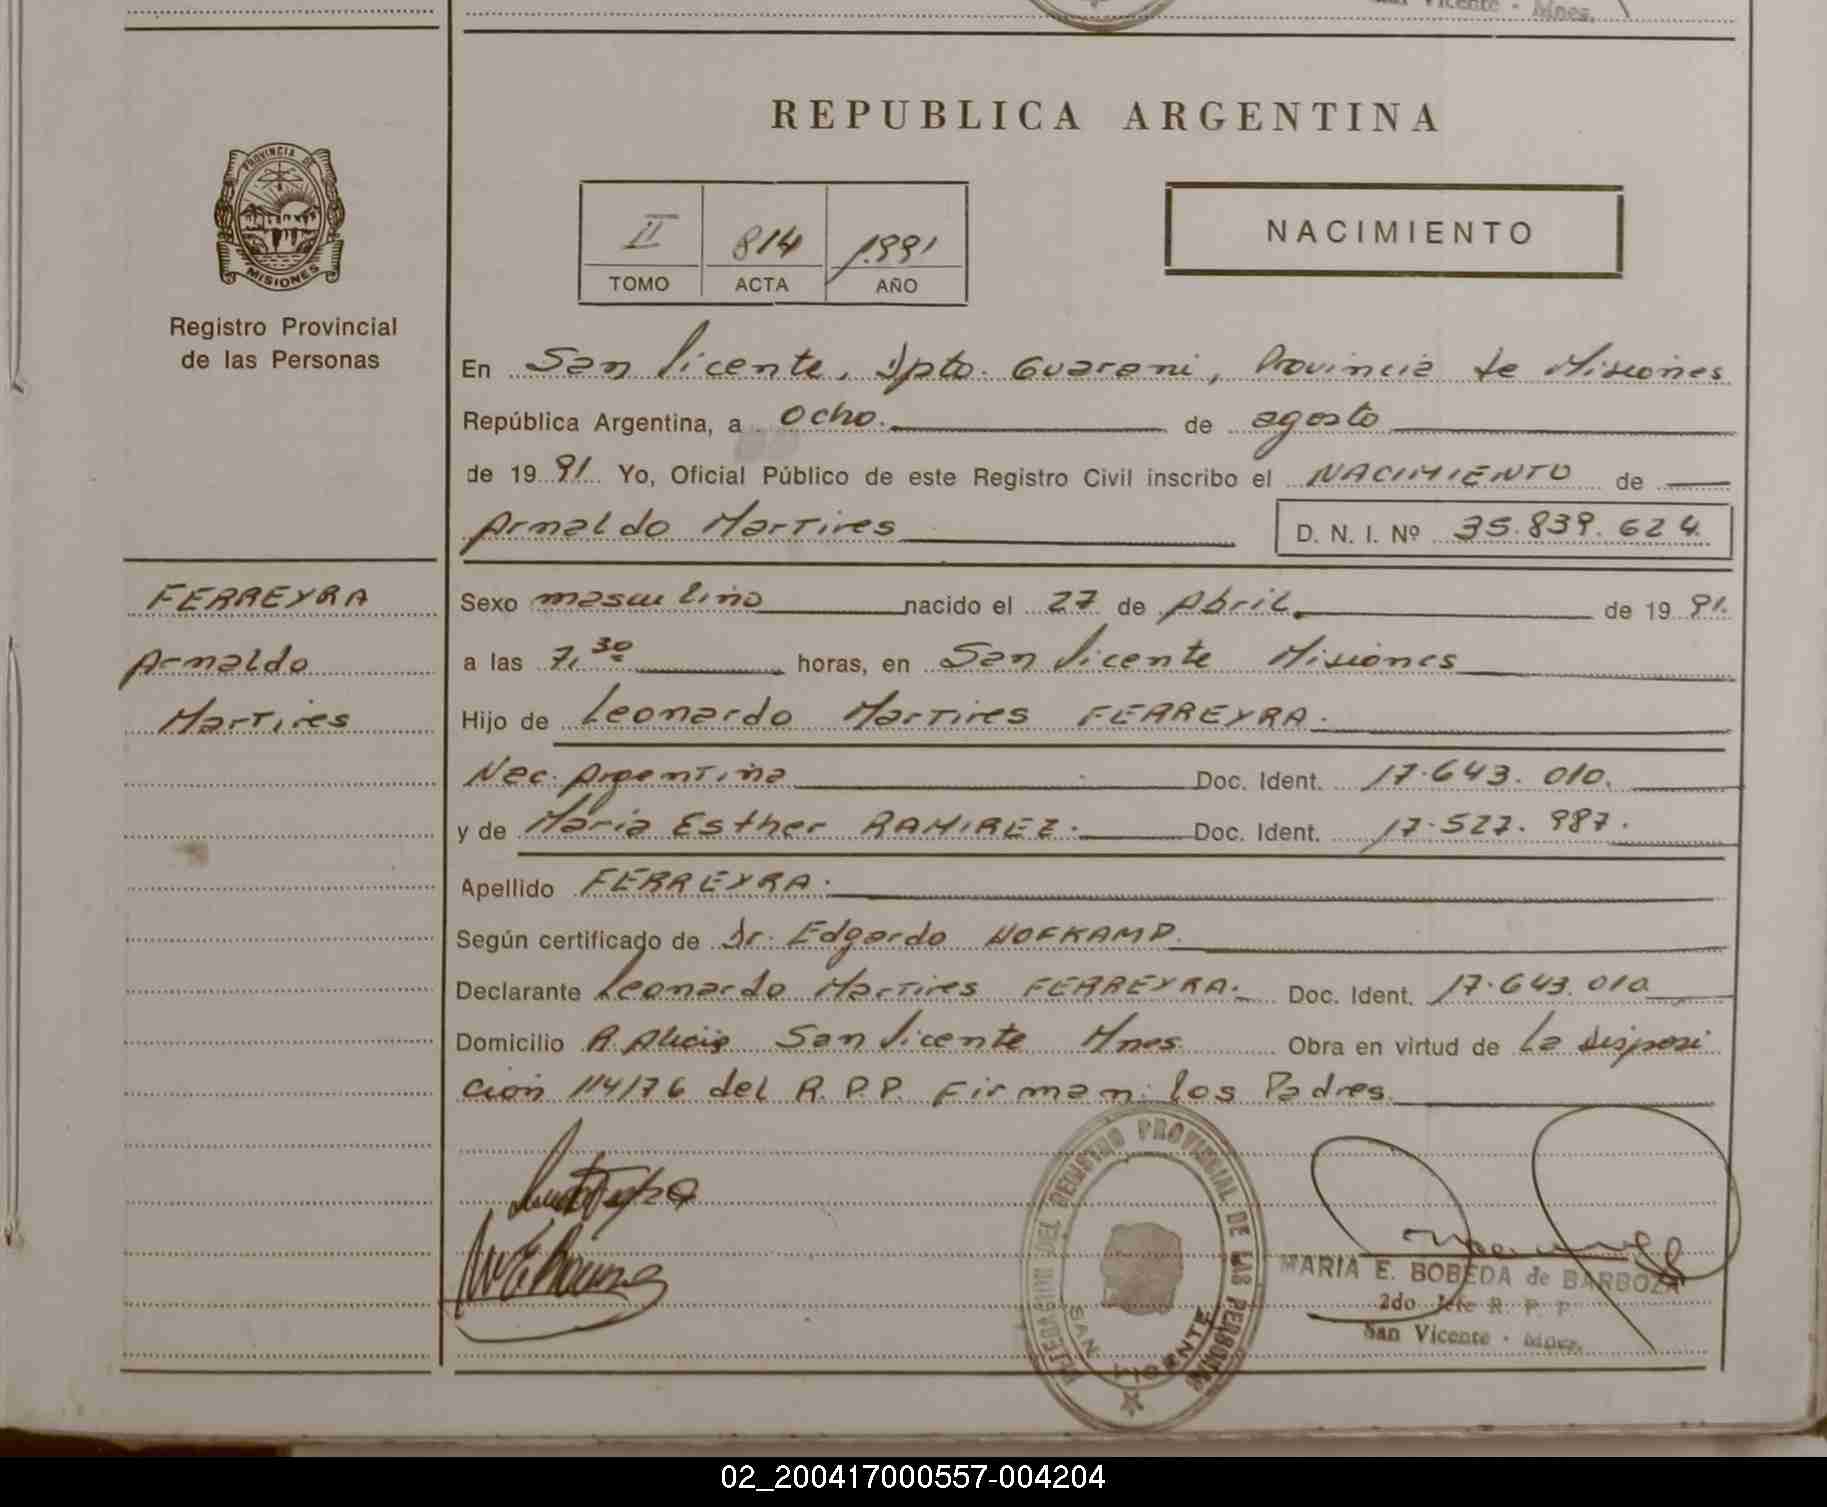 San Vicente - Mnes.
REPUBLICA ARGENTINA
PROVINCIA DE
MISIONES
Registro Provincial
de las Personas
II 814 1.991
TOMO ACTA AÑO
NACIMIENTO
En San Vicente, Dpto. Guarani, Provincia de Misiones
República Argentina, a ocho. de agosto
de 19 91. Yo, Oficial Público de este Registro Civil inscribo el NACIMIENTO de
Arnaldo Martires D. N. I. Nº 35.839.624.
FERREYRA
Arnaldo
Martires
Sexo masculino nacido el 27 de Abril. de 19 91.
a las 7,30 horas, en San Vicente Misiones
Hijo de Leonardo Martires FERREYRA.
Nac. Argentina Doc. Ident. 17.643.010.
y de Maria Esther RAMIREZ. Doc. Ident. 17.527.987.
Apellido FERREYRA.
Según certificado de Dr. Edgardo HOFKAMP.
Declarante Leonardo Martires FERREYRA. Doc. Ident. 17.643.010
Domicilio P. Alicia San Vicente Mnes. Obra en virtud de La disposi
ción 114/76 del R.P.P. Firman: los Padres.
DELEGACION DEL REGISTRO PROVINCIAL DE LAS PERSONAS
SAN VICENTE
MARIA E. BOBEDA de BARBOZA
2do. Jefe R. P. P.
San Vicente - Mnes.
02_200417000557-004204